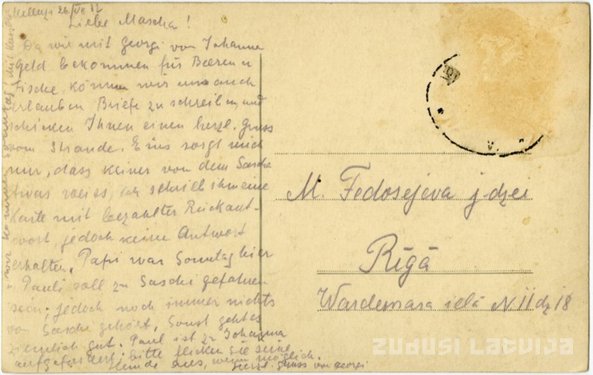 Liebe Mascha!
Da wir mit Georgi von Johanna
Geld bekommen für Beeren u
Fische, können wir uns auch
erlauben Briefe zu schreiben und
schicken Ihnen einen herzl. Gruss
vom Strande. Eins sorgt mich
nur, dass keiner von dem Sascha
etwas weiss, ich schrieb ihm eine
Karte mit bezahlter Rückant-
wort, jedoch keine Antwort
erhalten. Papi war Sonntag hier
Pauli soll zu Sascha gefahren
sein. jedoch noch immer nichts
von Sascha gehört, Sonst geht es
ziemlich gut. Paul ist zu Johanna
aufgefordert, bitte flicken Sie seine
Hemde aus, wenn möglich.
Gruss von Georgi
M. Fedosejeva j dzei
Rīgā
Wardemara ielā N 11 dz 18
ZUDUSI LATVIJA